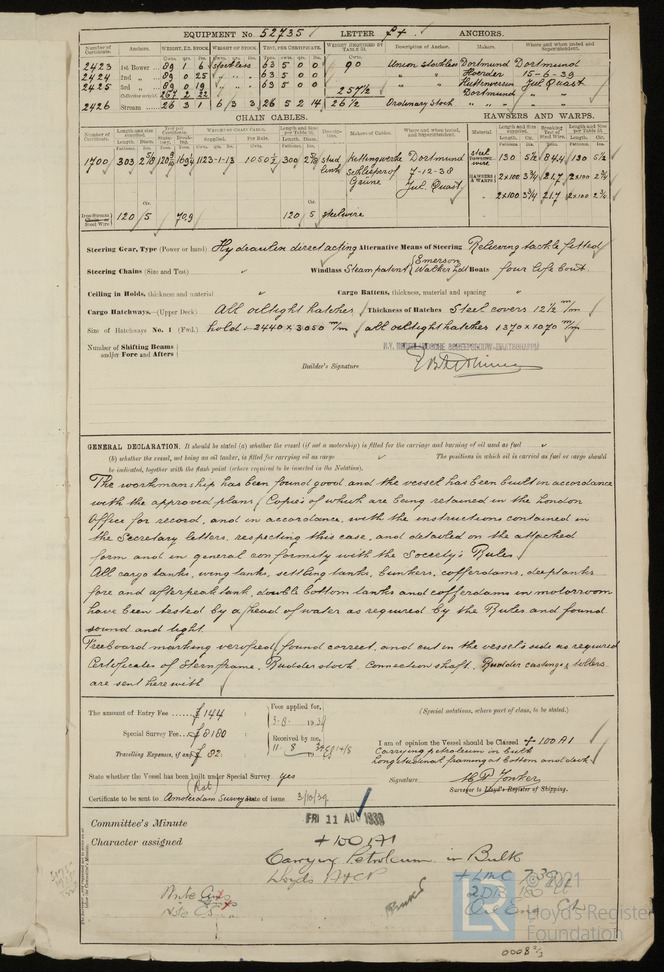 EQUIPMENT No 52735 LETTER f+ ANCHORS.
Number of Certificate. Anchors. WEIGHT, EX. STOCK. WEIGHT OF STOCK. TEST, PER CERTIFICATE. WEIGHT REQUIRED BY TABLE 31. Description of Anchor. Makers. Where and when tested and Superintendent.
2423 1st Bower 89 1 6 stockless 63 5 0 0 90 Union stockless Dortmund Dortmund
2424 2nd 89 0 25 " " " 63 5 0 0 " " Hoerder 15-6-39
2425 3rd 89 0 19 " " " 63 5 0 0 Huttenverein Jul Quast
Collective weight 267 2 22 257½ Dortmund " "
2426 Stream 26 3 1 6 3 3 26 5 2 14 26½ Ordinary stock " " " "
CHAIN CABLES. HAWSERS AND WARPS.
1700 303 2 5/8 1123-1-13 1050½ 300 stud link Kettingwerke Dortmund steel 130 5½ 84.4 130 5½
Schlieper of 7-12-38 HAWSERS & WARPS 2x100 3¾ 21.7 2x100 2¾
Grüne Jul. Quast " 2x100 3¾ 21.7 2x100 2¾
Steel Wire 120 5 70.9 120 5 steelwire
Steering Gear, Type (Power or hand) Hydraulic direct acting Alternative Means of Steering Relieving tackle fitted
Steering Chains (Size and Test) " Windlass Steam patent Emerson Walker Ltd Boats four life boat.
Ceiling in Holds, thickness and material " Cargo Battens, thickness, material and spacing "
Cargo Hatchways.—(Upper Deck) All oiltight hatches Thickness of Hatches Steel covers 12½ m/m
Size of Hatchways No. 1 (Fwd.) hold - 2440 x 3050 m/m all oiltight hatches 1370 x 1070 m/m
Number of Shifting Beams and/or Fore and Afters
Builder's Signature
GENERAL DECLARATION. It should be stated (a) whether the vessel (if not a motorship) is fitted for the carriage and burning of oil used as fuel
(b) whether the vessel, not being an oil tanker, is fitted for carrying oil as cargo The positions in which oil is carried as fuel or cargo should
be indicated, together with the flash point (where required to be inserted in the Notation).
The workmanship has been found good and the vessel has been built in accordance
with the approved plans (Copies of which are being retained in the London
Office for record, and in accordance, with the instructions contained in
the Secretary letters, respecting this case, and detailed on the attached
form and in general conformity with the Society's Rules
All cargo tanks, wing tanks, settling tanks, bunkers, cofferdams, deeptanks
fore and afterpeak tank, double bottom tanks and cofferdams in motorroom
have been tested by a head of water as required by the Rules and found
sound and tight.
Freeboard marking verified, found correct, and cut in the vessel's side as required
Certificates of Sternframe, Rudder stock, connection shaft, Rudder castings & tillers
are sent herewith
The amount of Entry Fee ...... £ 144 Fee applied for, (Special notations, where part of class, to be stated.)
3-8- 1939
Special Survey Fee.... £ 8180 Received by me,
11. 8 39 I am of opinion the Vessel should be Classed +100A1
Travelling Expenses, if any £ 82. Carrying petroleum in bulk
Longitudinal framing at bottom and deck.
State whether the Vessel has been built under Special Survey yes Signature
Surveyor to Lloyd's Register of Shipping.
Certificate to be sent to Amsterdam Surveyors Date of issue 3/10/39
Committee's Minute FRI 11 AUG 1939
Character assigned +100A1
Carrying Petroleum in Bulk
Lloyds A&CP
+LMC 7.39
Oil Eng
© 2021
LR
Lloyd's Register
Foundation